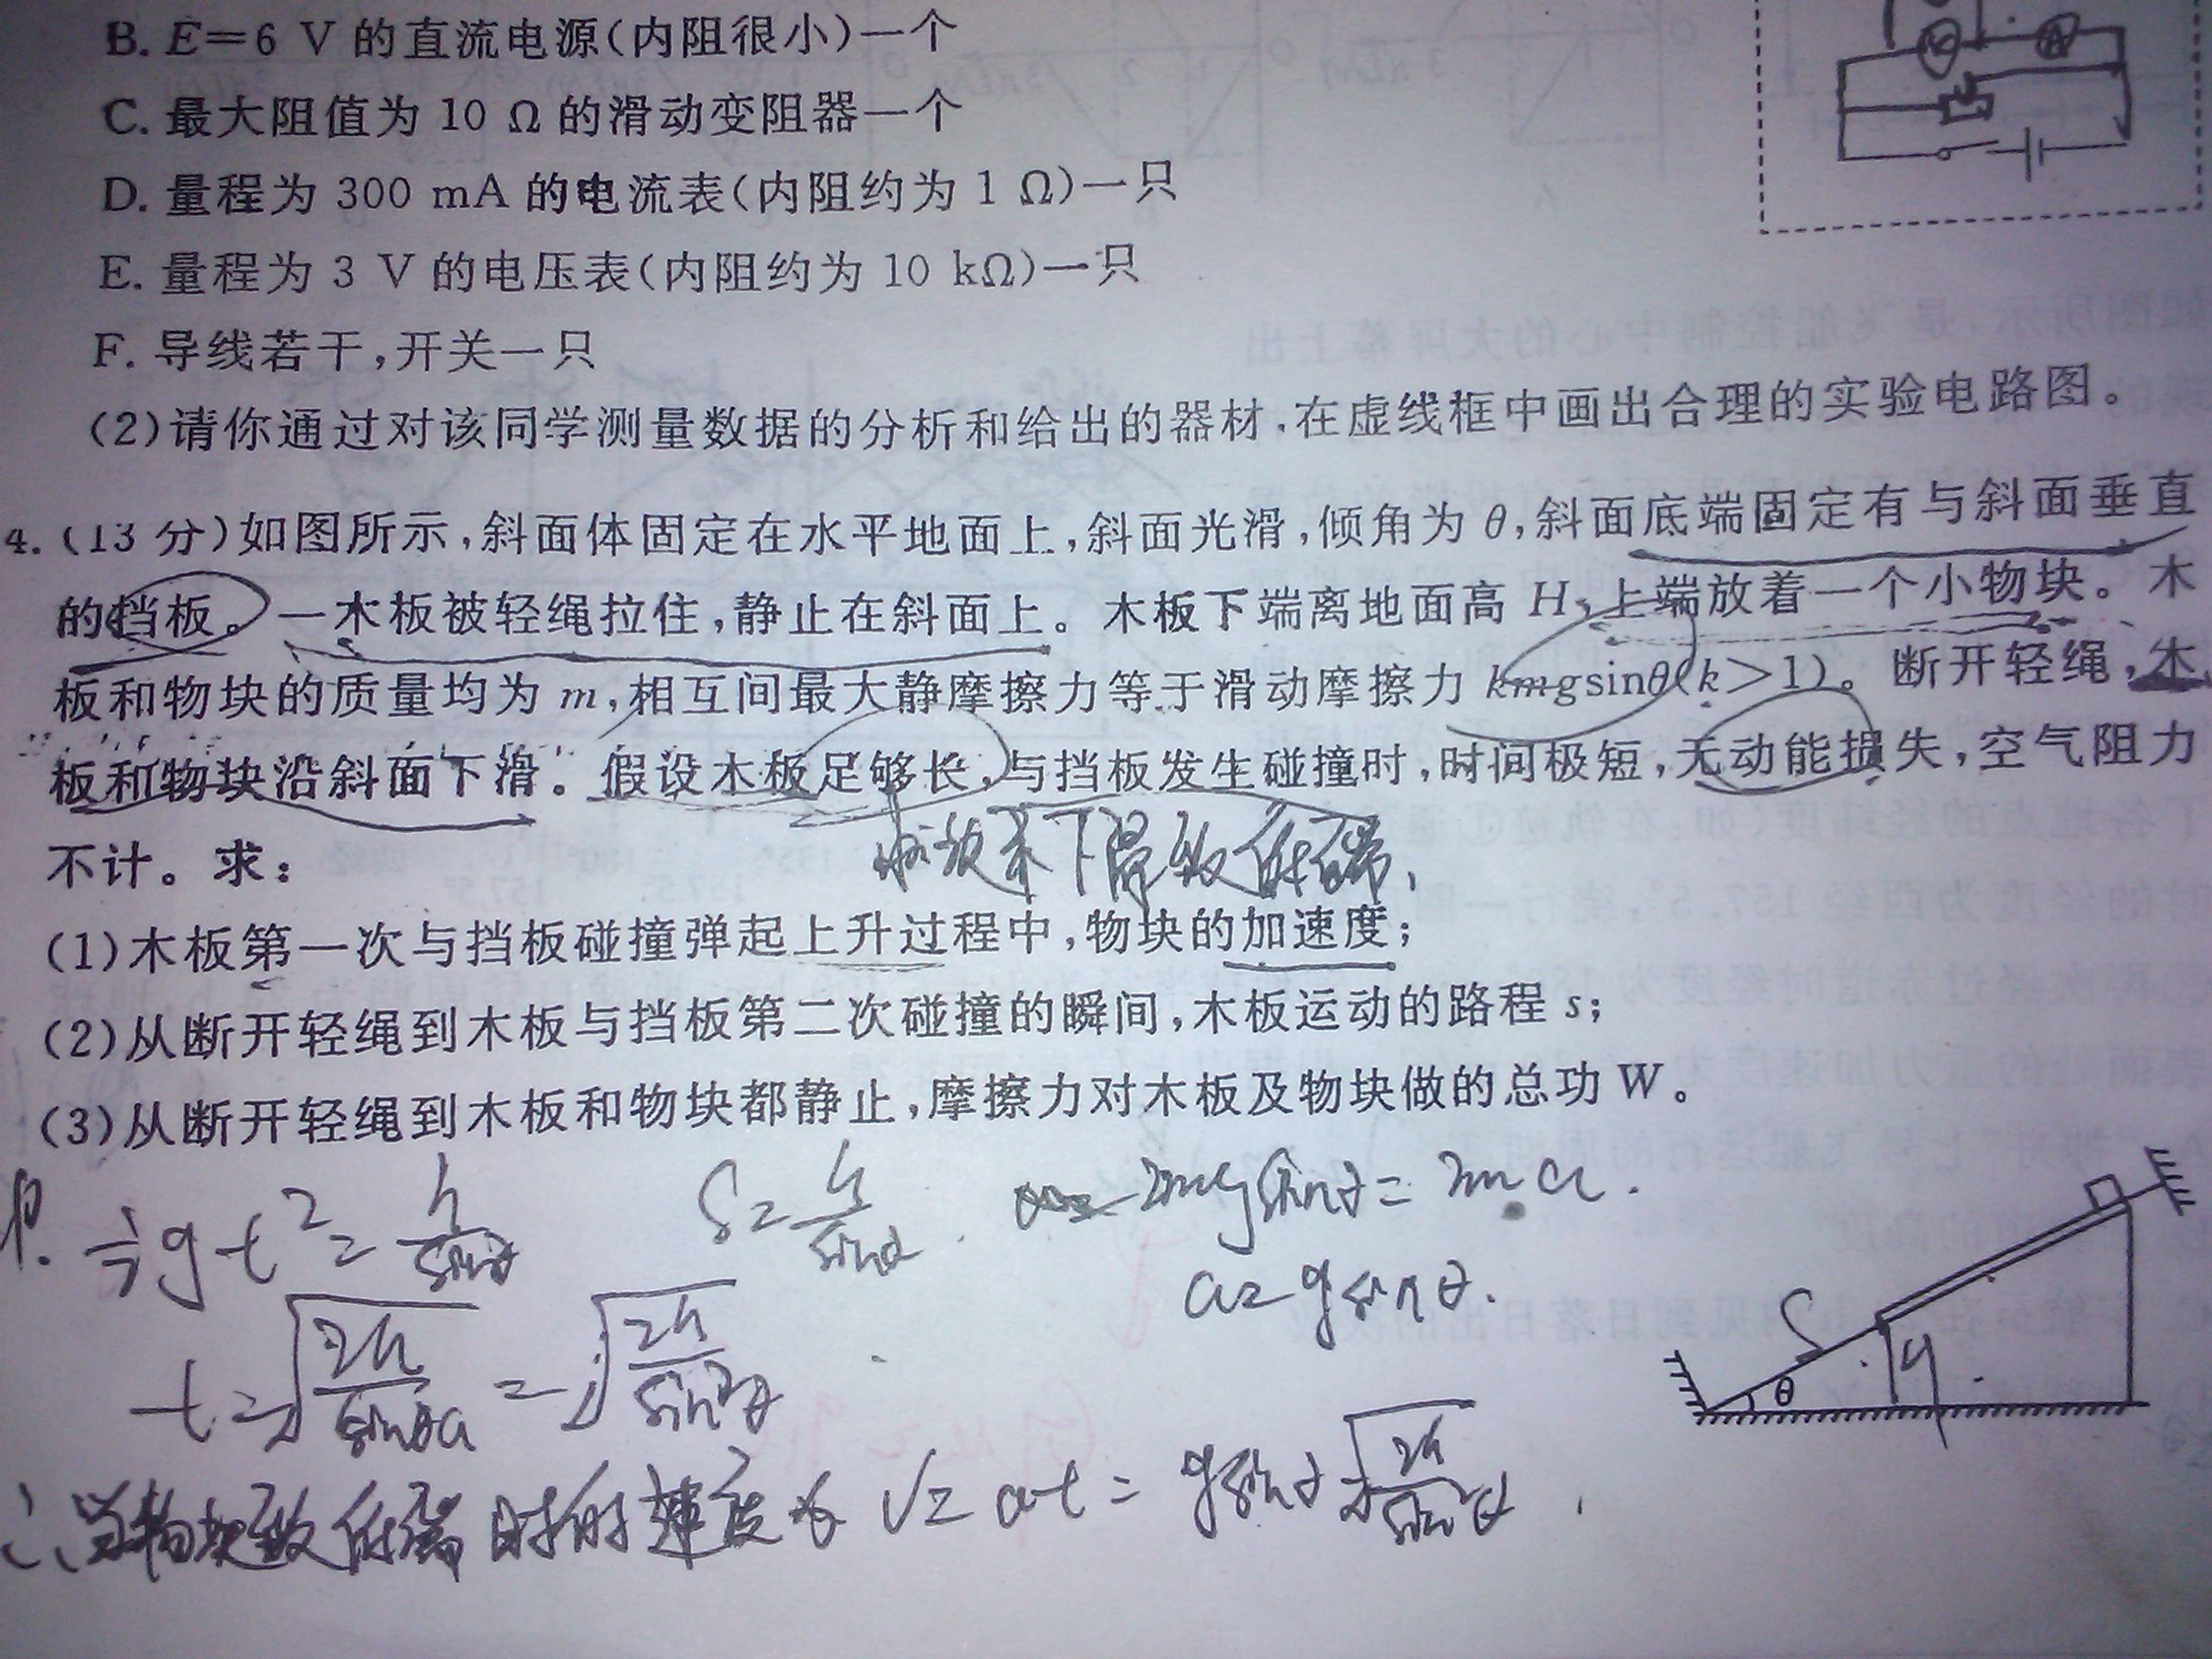 B. E=6 V 的直流电源(内阻很小)一个
C. 最大阻值为 10 Ω 的滑动变阻器一个
D. 量程为 300 mA 的电流表(内阻约为 1 Ω)一只
E. 量程为 3 V 的电压表(内阻约为 10 kΩ)一只
F. 导线若干,开关一只
(2)请你通过对该同学测量数据的分析和给出的器材,在虚线框中画出合理的实验电路图。
4.(13 分)如图所示,斜面体固定在水平地面上,斜面光滑,倾角为 θ,斜面底端固定有与斜面垂直
的挡板。一木板被轻绳拉住,静止在斜面上。木板下端离地面高 H,上端放着一个小物块。木
板和物块的质量均为 m,相互间最大静摩擦力等于滑动摩擦力 kmgsinθ(k>1)。断开轻绳,木
板和物块沿斜面下滑。假设木板足够长,与挡板发生碰撞时,时间极短,无动能损失,空气阻力
不计。求:
下降致底端
(1)木板第一次与挡板碰撞弹起上升过程中,物块的加速度;
(2)从断开轻绳到木板与挡板第二次碰撞的瞬间,木板运动的路程 s;
(3)从断开轻绳到木板和物块都静止,摩擦力对木板及物块做的总功 W。
2mgsinθ=2ma.
a=gsinθ.
θ
∴当物块致底端时的速度为 V=at=